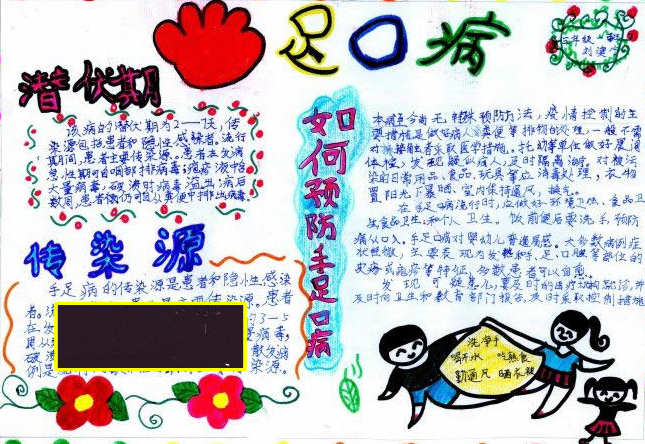 足口病
三年级
潜伏期
该病的潜伏期为2—7天，传
染源包括患者和隐性感染者。流行
期间，患者主要传染源。患者在发病
急性期可自咽部排病毒；疱疹液中含
大量病毒，破溃时病毒溢出；病后
数周，患者仍可自从粪便中排出病毒。
传染源
手足病的传染源是患者和隐性感染
者。
患者
3—5
病毒，
散发病
例是
染源。
如何预防手足口病
本病至今尚无特殊预防方法，疫情控制的主
要措施是做好病人粪便等排物的处理，一般不需
对接触者采取医学措施。托幼等单位做好晨间
体检，发现疑似病人，及时隔离治疗。对被污
染的日常用品、食品、玩具等应消毒处理，衣物
置阳光下暴晒，室内保持通风，换气。
在手足口病流行时，应做好环境卫生、食品卫
生食品卫生和个人卫生。饭前便后要洗手，预防
病从口入。手足口病对婴幼儿普遍易感。大多数病例症
状轻微，主要表现为发热和手、足、口腔等部位的
皮疹或疱疹等特征，多数患者可以自愈。
发现可疑患儿，要及时到医疗机构就诊，并
及时向卫生和教育部门报告，及时采取控制措施
洗净手
喝开水 吃熟食
勤通风 晒衣被